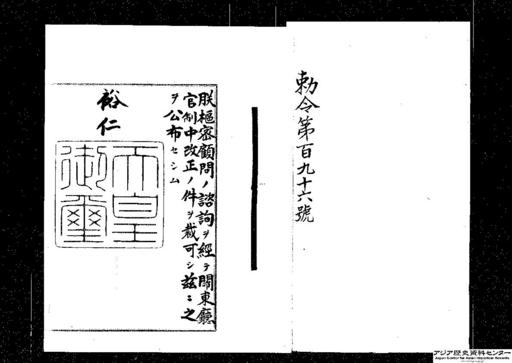 勅令第百九十六號
朕樞密顧問ノ諮詢ヲ經テ關東廳
官制中改正ノ件ヲ裁可シ玆ニ之
ヲ公布セシム
裕仁
天皇
御璽
アジア歴史資料センター
Japan Center for Asian Historical Records